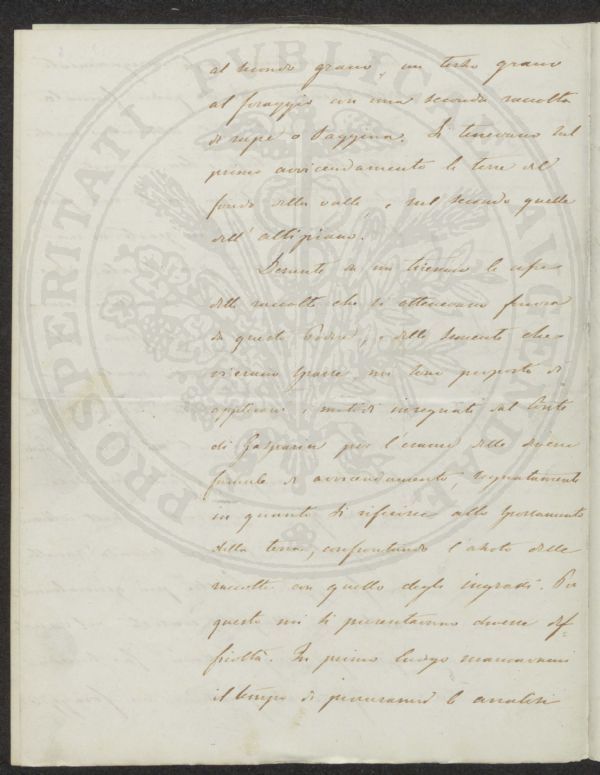 al secondo grano, un terzo grano
al foraggio con una seconda raccolta
di rape o saggina. Si tenevano sul
primo avvicendamento le terre del
fondo della valle, e sul secondo quelle
dell'altipiano.
le cifre
delle raccolte che si ottenevano finora
da questo Podere, e delle semente che
vi erano sparse mi sono proposto di
applicare i metodi insegnati dal Conte
di Gasparin per l'esame delle diverse
formule di avvicendamento, segnatamente
in quanto si riferisce allo spossamento
della terra, confrontando l'azoto delle
raccolte con quello degli ingrassi. Per
questo mi si presentavano diverse dif=
ficoltà. In primo luogo mancavami
il tempo di procurarmi le analisi
PROSPERITATI PUBLICAE AUGENDAE